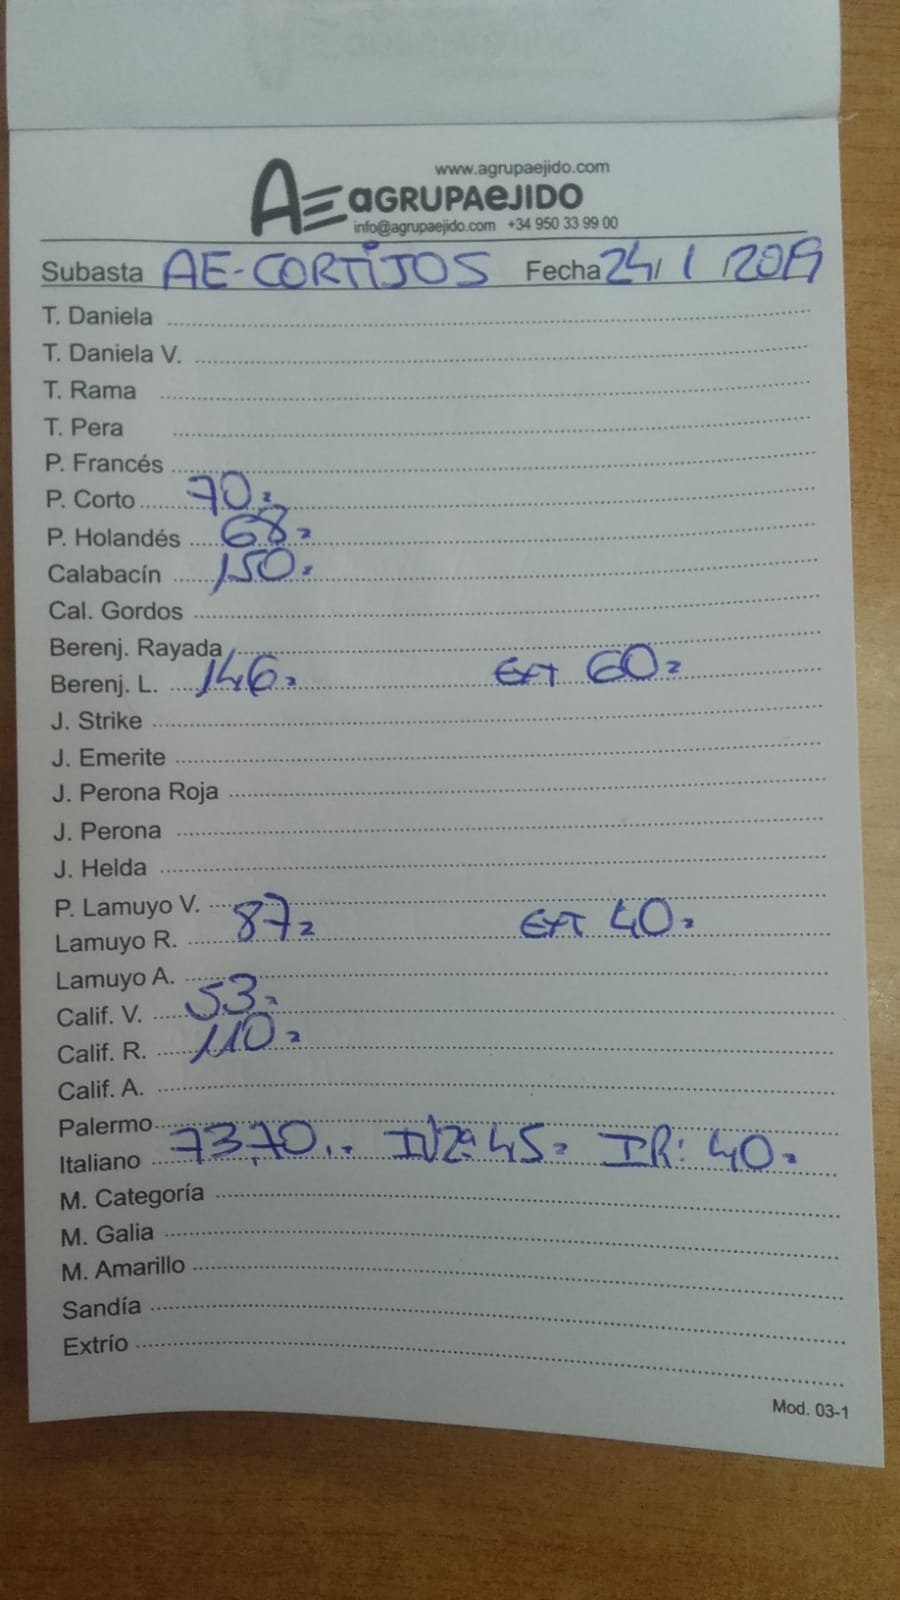 www.agrupaejido.com
AE AGRUPAEJIDO
info@agrupaejido.com +34 950 33 99 00
Subasta AE-CORTIJOS Fecha 24/ 1 /2019
T. Daniela
T. Daniela V.
T. Rama
T. Pera
P. Francés
P. Corto 70
P. Holandés 68
Calabacín 150
Cal. Gordos
Berenj. Rayada
Berenj. L. 146 EXT 60
J. Strike
J. Emerite
J. Perona Roja
J. Perona
J. Helda
P. Lamuyo V.
Lamuyo R. 87 EXT 40
Lamuyo A.
Calif. V. 53
Calif. R. 110
Calif. A.
Palermo
Italiano 73,70 IV2ª: 45 IR: 40
M. Categoría
M. Galia
M. Amarillo
Sandía
Extrío
Mod. 03-1